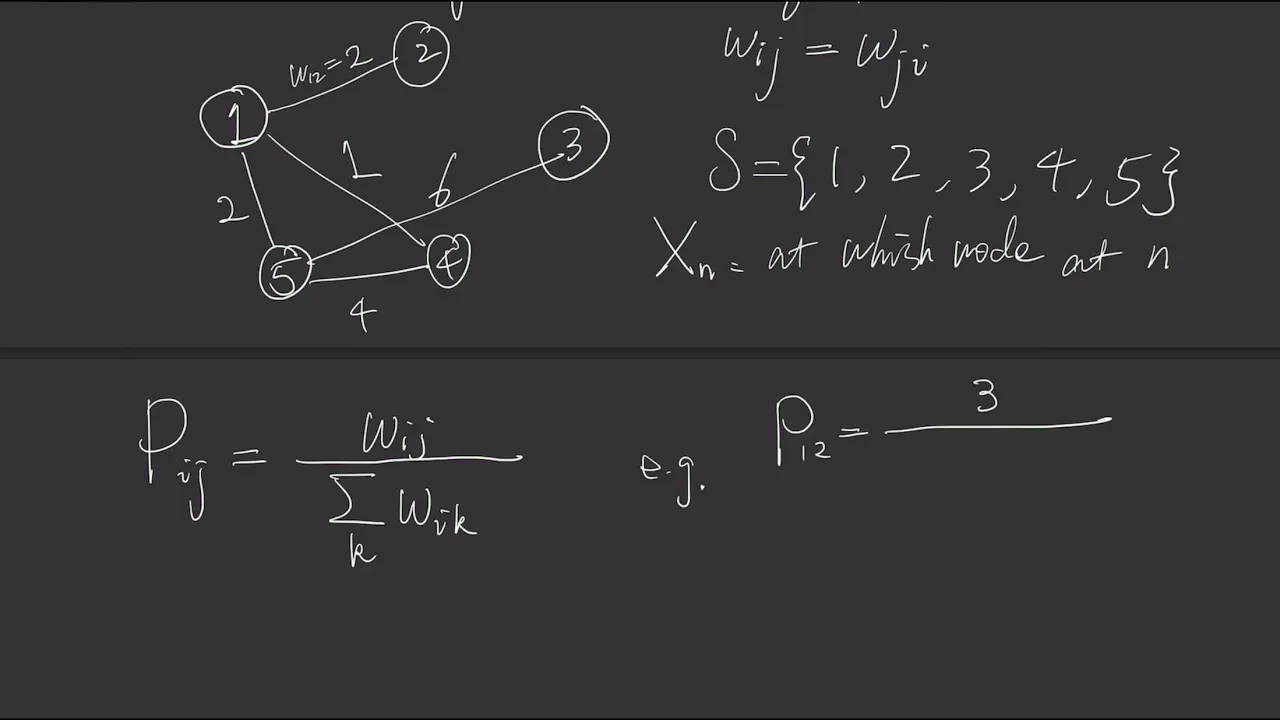 w₁₂=2
2
1
3
1
6
2
5
4
4
wᵢⱼ = wⱼᵢ
S={1, 2, 3, 4, 5}
Xₙ = at which node at n
Pᵢⱼ = wᵢⱼ / ∑ₖ wᵢₖ
e.g. P₁₂ = 3